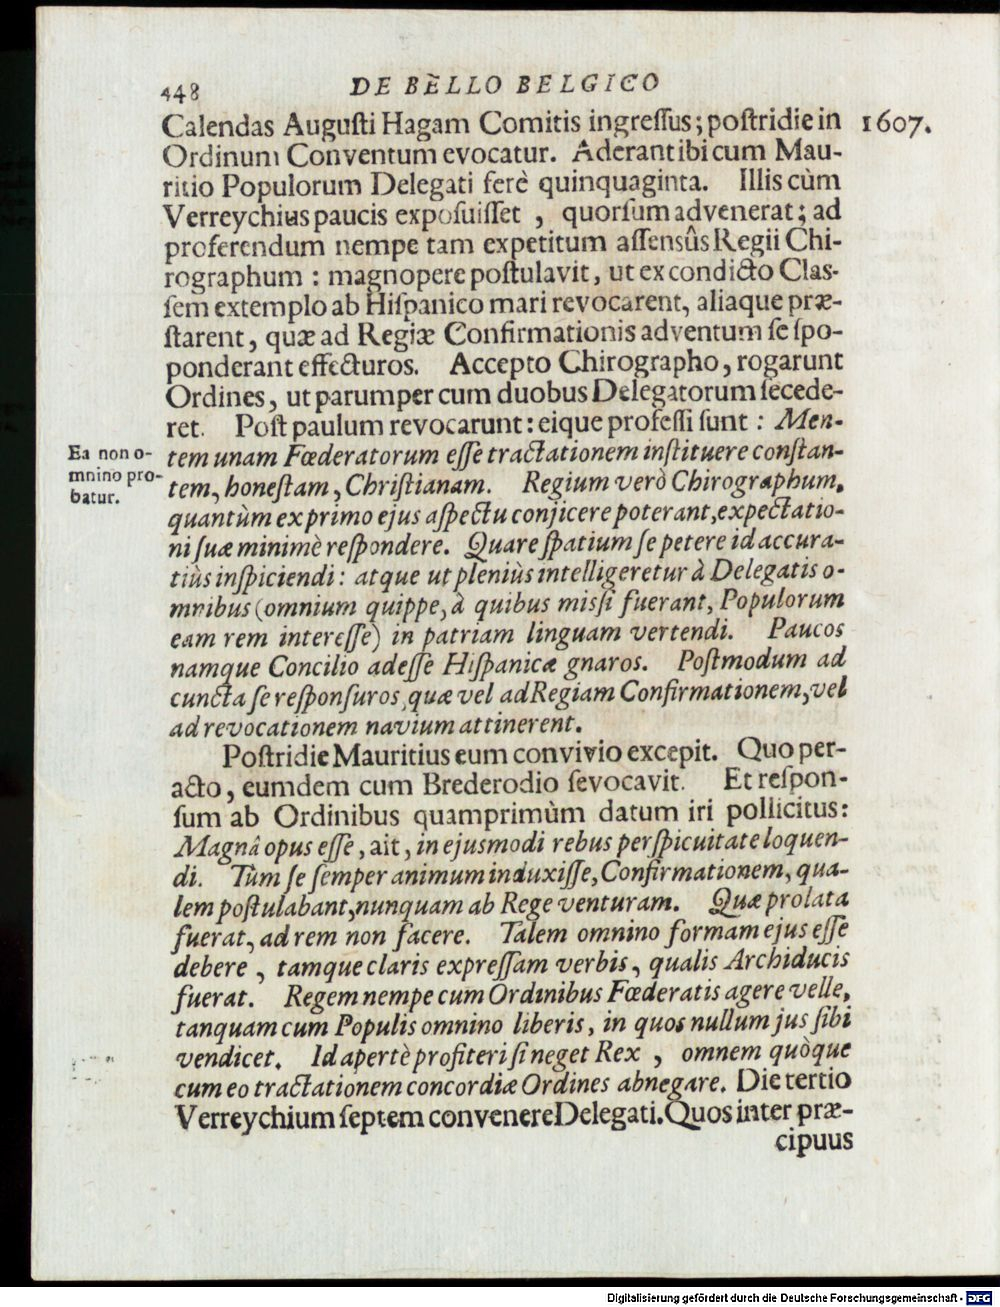 448 DE BELLO BELGICO
Calendas Augusti Hagam Comitis ingreſſus; poſtridie in 1607.
Ordinum Conventum evocatur. Aderant ibi cum Mau-
ritio Populorum Delegati ferè quinquaginta. Illis cùm
Verreychius paucis expoſuiſſet, quorſum advenerat; ad
proferendum nempe tam expetitum aſſensûs Regii Chi-
rographum: magnopere poſtulavit, ut ex condicto Claſ-
ſem extemplo ab Hiſpanico mari revocarent, aliaque præ-
ſtarent, quæ ad Regiæ Confirmationis adventum ſe ſpo-
ponderant effecturos. Accepto Chirographo, rogarunt
Ordines, ut parumper cum duobus Delegatorum ſecede-
ret. Poſt paulum revocarunt: eique profeſſi ſunt: Men-
Ea non o-
mnino pro-
batur.
tem unam Fœderatorum eſſe tractationem inſtituere conſtan-
tem, honeſtam, Chriſtianam. Regium verò Chirographum,
quantùm ex primo ejus aſpectu conjicere poterant, expectatio-
ni ſuæ minimè reſpondere. Quare ſpatium ſe petere id accura-
tiùs inſpiciendi: atque ut pleniùs intelligeretur à Delegatis o-
mnibus (omnium quippe, à quibus missi fuerant, Populorum
eam rem intereſſe) in patriam linguam vertendi. Paucos
namque Concilio adeſſe Hiſpanicæ gnaros. Poſtmodum ad
cuncta ſe reſponſuros, quæ vel ad Regiam Confirmationem, vel
ad revocationem navium attinerent.
Poſtridie Mauritius eum convivio excepit. Quo per-
acto, eumdem cum Brederodio ſevocavit. Et reſpon-
ſum ab Ordinibus quamprimùm datum iri pollicitus:
Magnâ opus eſſe, ait, in ejusmodi rebus perſpicuitate loquen-
di. Tùm ſe ſemper animum induxiſſe, Confirmationem, qua-
lem poſtulabant, nunquam ab Rege venturam. Quæ prolata
fuerat, ad rem non facere. Talem omnino formam ejus eſſe
debere, tamque claris expreſſam verbis, qualis Archiducis
fuerat. Regem nempe cum Ordinibus Fœderatis agere velle,
tanquam cum Populis omnino liberis, in quos nullum jus ſibi
vendicet. Id apertè profiteri ſi neget Rex, omnem quòque
cum eo tractationem concordiæ Ordines abnegare. Die tertio
Verreychium ſeptem convenere Delegati. Quos inter præ-
cipuus
Digitalisierung gefördert durch die Deutsche Forschungsgemeinschaft - DFG